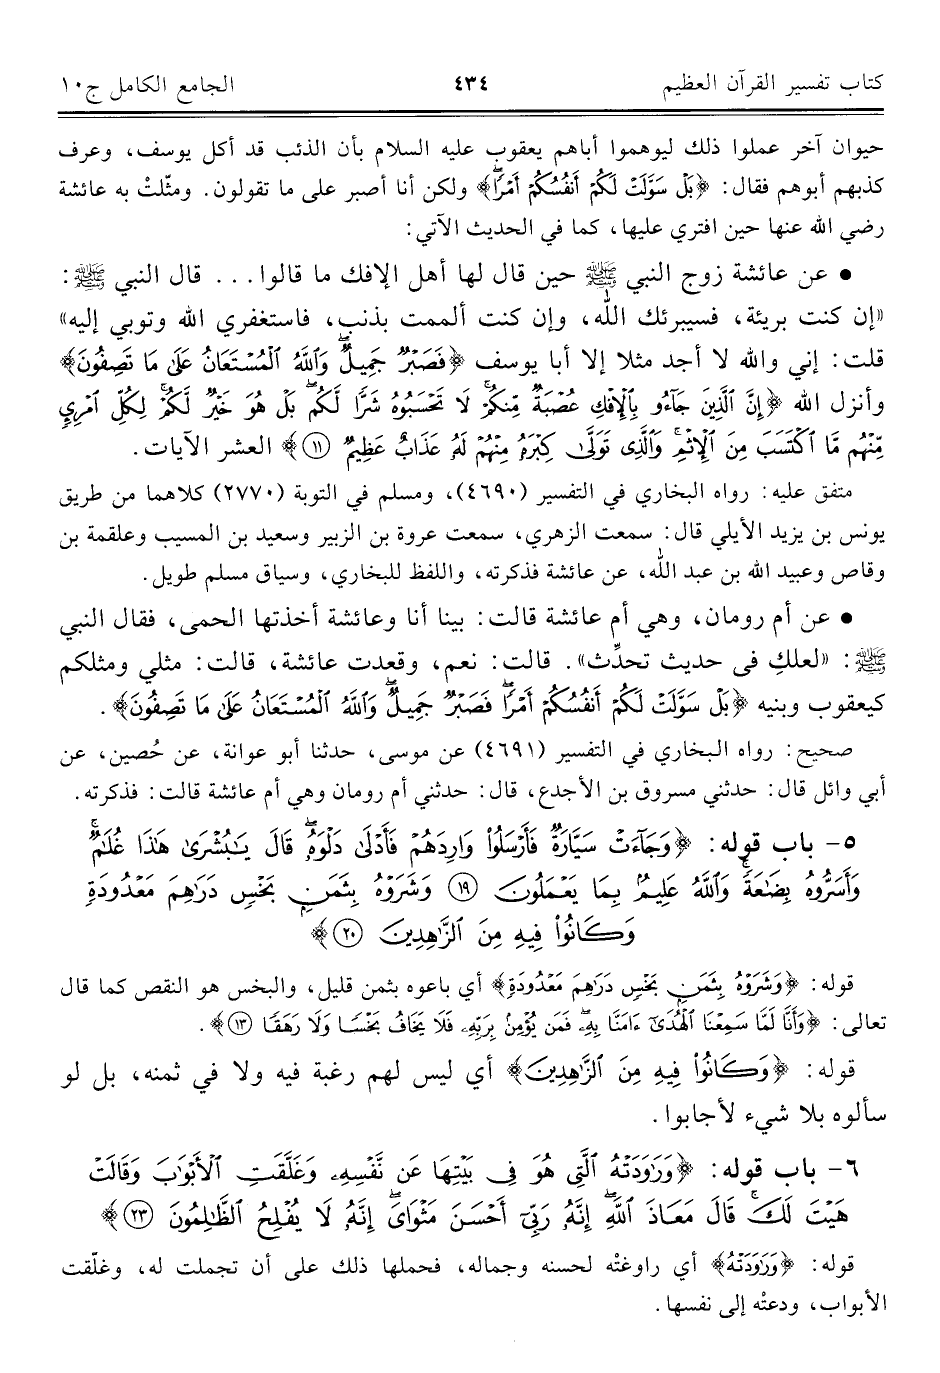 كتاب تفسير القرآن العظيم ٤٣٤ الجامع الكامل ج١٠
حيوان آخر عملوا ذلك ليوهموا أباهم يعقوب عليه السلام بأن الذئب قد أكل يوسف، وعرف
كذبهم أبوهم فقال: ﴿بَلْ سَوَّلَتْ لَكُمْ أَنفُسُكُمْ أَمْرًا﴾ ولكن أنا أصبر على ما تقولون. ومثّلتْ به عائشة
رضي الله عنها حين افتري عليها، كما في الحديث الآتي:
● عن عائشة زوج النبي ﷺ حين قال لها أهل الإفك ما قالوا... قال النبي ﷺ:
«إن كنت بريئة، فسيبرئك الله، وإن كنت ألممت بذنب، فاستغفري الله وتوبي إليه»
قلت: إني والله لا أجد مثلا إلا أبا يوسف ﴿فَصَبْرٌ جَمِيلٌ وَٱللَّهُ ٱلْمُسْتَعَانُ عَلَىٰ مَا تَصِفُونَ﴾
وأنزل الله ﴿إِنَّ ٱلَّذِينَ جَآءُو بِٱلْإِفْكِ عُصْبَةٌ مِّنكُمْ لَا تَحْسَبُوهُ شَرًّا لَّكُم بَلْ هُوَ خَيْرٌ لَّكُمْ لِكُلِّ ٱمْرِئٍ
مِّنْهُم مَّا ٱكْتَسَبَ مِنَ ٱلْإِثْمِ وَٱلَّذِى تَوَلَّىٰ كِبْرَهُۥ مِنْهُمْ لَهُۥ عَذَابٌ عَظِيمٌ ١١﴾ العشر الآيات.
متفق عليه: رواه البخاري في التفسير (٤٦٩٠)، ومسلم في التوبة (٢٧٧٠) كلاهما من طريق
يونس بن يزيد الأيلي قال: سمعت الزهري، سمعت عروة بن الزبير وسعيد بن المسيب وعلقمة بن
وقاص وعبيد الله بن عبد الله، عن عائشة فذكرته، واللفظ للبخاري، وسياق مسلم طويل.
● عن أم رومان، وهي أم عائشة قالت: بينا أنا وعائشة أخذتها الحمى، فقال النبي
ﷺ: «لعلكِ في حديث تحدِّث». قالت: نعم، وقعدت عائشة، قالت: مثلي ومثلكم
كيعقوب وبنيه ﴿بَلْ سَوَّلَتْ لَكُمْ أَنفُسُكُمْ أَمْرًا فَصَبْرٌ جَمِيلٌ وَٱللَّهُ ٱلْمُسْتَعَانُ عَلَىٰ مَا تَصِفُونَ﴾.
صحيح: رواه البخاري في التفسير (٤٦٩١) عن موسى، حدثنا أبو عوانة، عن حُصين، عن
أبي وائل قال: حدثني مسروق بن الأجدع، قال: حدثني أم رومان وهي أم عائشة قالت: فذكرته.
٥- باب قوله: ﴿وَجَآءَتْ سَيَّارَةٌ فَأَرْسَلُوا۟ وَارِدَهُمْ فَأَدْلَىٰ دَلْوَهُۥ قَالَ يَٰبُشْرَىٰ هَٰذَا غُلَٰمٌ
وَأَسَرُّوهُ بِضَٰعَةً وَٱللَّهُ عَلِيمٌۢ بِمَا يَعْمَلُونَ ١٩ وَشَرَوْهُ بِثَمَنٍۭ بَخْسٍ دَرَٰهِمَ مَعْدُودَةٍ
وَكَانُوا۟ فِيهِ مِنَ ٱلزَّٰهِدِينَ ٢٠﴾
قوله: ﴿وَشَرَوْهُ بِثَمَنٍۭ بَخْسٍ دَرَٰهِمَ مَعْدُودَةٍ﴾ أي باعوه بثمن قليل، والبخس هو النقص كما قال
تعالى: ﴿وَأَنَّا لَمَّا سَمِعْنَا ٱلْهُدَىٰٓ ءَامَنَّا بِهِۦ فَمَن يُؤْمِنۢ بِرَبِّهِۦ فَلَا يَخَافُ بَخْسًا وَلَا رَهَقًا ١٣﴾.
قوله: ﴿وَكَانُوا۟ فِيهِ مِنَ ٱلزَّٰهِدِينَ﴾ أي ليس لهم رغبة فيه ولا في ثمنه، بل لو
سألوه بلا شيء لأجابوا.
٦- باب قوله: ﴿وَرَٰوَدَتْهُ ٱلَّتِى هُوَ فِى بَيْتِهَا عَن نَّفْسِهِۦ وَغَلَّقَتِ ٱلْأَبْوَٰبَ وَقَالَتْ
هَيْتَ لَكَ قَالَ مَعَاذَ ٱللَّهِ إِنَّهُۥ رَبِّىٓ أَحْسَنَ مَثْوَاىَ إِنَّهُۥ لَا يُفْلِحُ ٱلظَّٰلِمُونَ ٢٣﴾
قوله: ﴿وَرَٰوَدَتْهُ﴾ أي راوغتْه لحسنه وجماله، فحملها ذلك على أن تجملت له، وغلّقت
الأبواب، ودعتْه إلى نفسها.